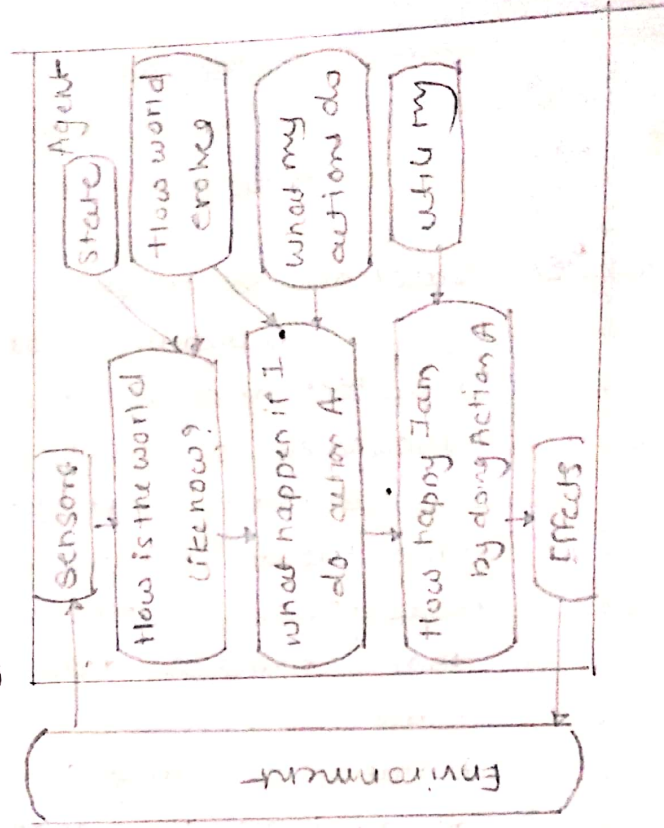 Agent
state
How world
evolves
what my
actions do
utility
Sensors
How is the world
like now?
what happen if I
do action A
How happy I am
by doing Action A
Effects
Environment